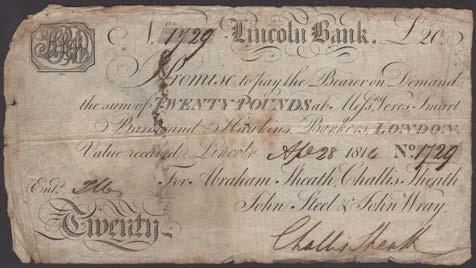 No. 1729 Lincoln Bank. £20.
I Promise to pay the Bearer on Demand
the sum of TWENTY POUNDS at Messrs. Veres, Smart
Baron and Hawkins, Bankers LONDON,
Value received, Lincoln Apl 28 1814 No. 1729
For Abraham Sheath, Challis Sheath
Entd.
John Steel & John Wray.
Twenty
Challis Sheath